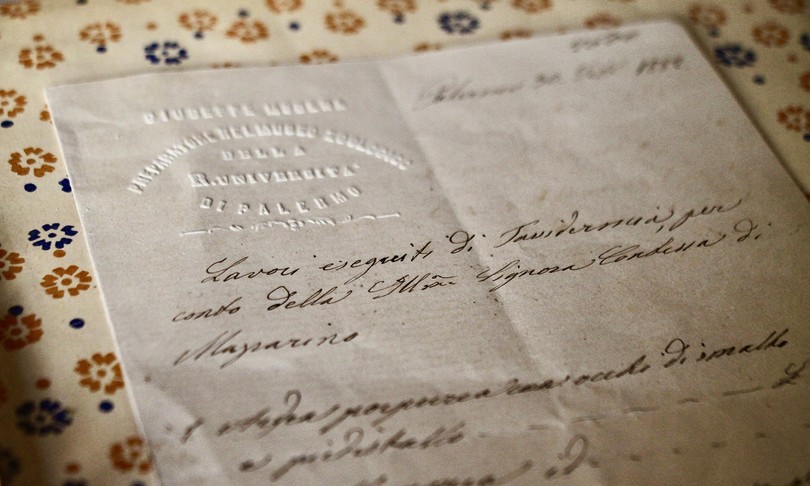 GIUSEPPE MODENA
PREPARATORE DEL MUSEO ZOOLOGICO
DELLA
R. UNIVERSITÀ
DI PALERMO
Palermo 30
Lavori eseguiti di Tassidermia, per
conto della Ill.ma Signora Contessa di
Mazzarino
1 Ardea porpurea con occhi di smalto
e piedistallo